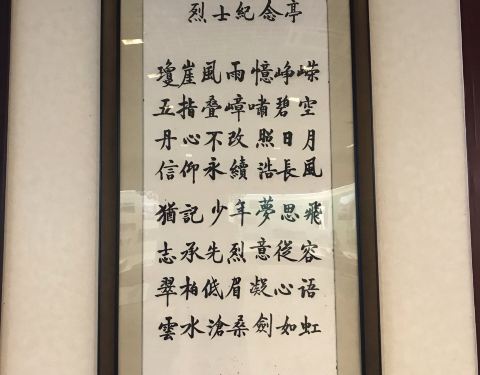 烈士紀念亭
瓊崖風雨憶峥嵘
五指叠嶂嘯碧空
丹心不改照日月
信仰永續浩長風
猶記少年夢思飛
志承先烈意從容
翠柏低眉凝心语
雲水滄桑劍如虹